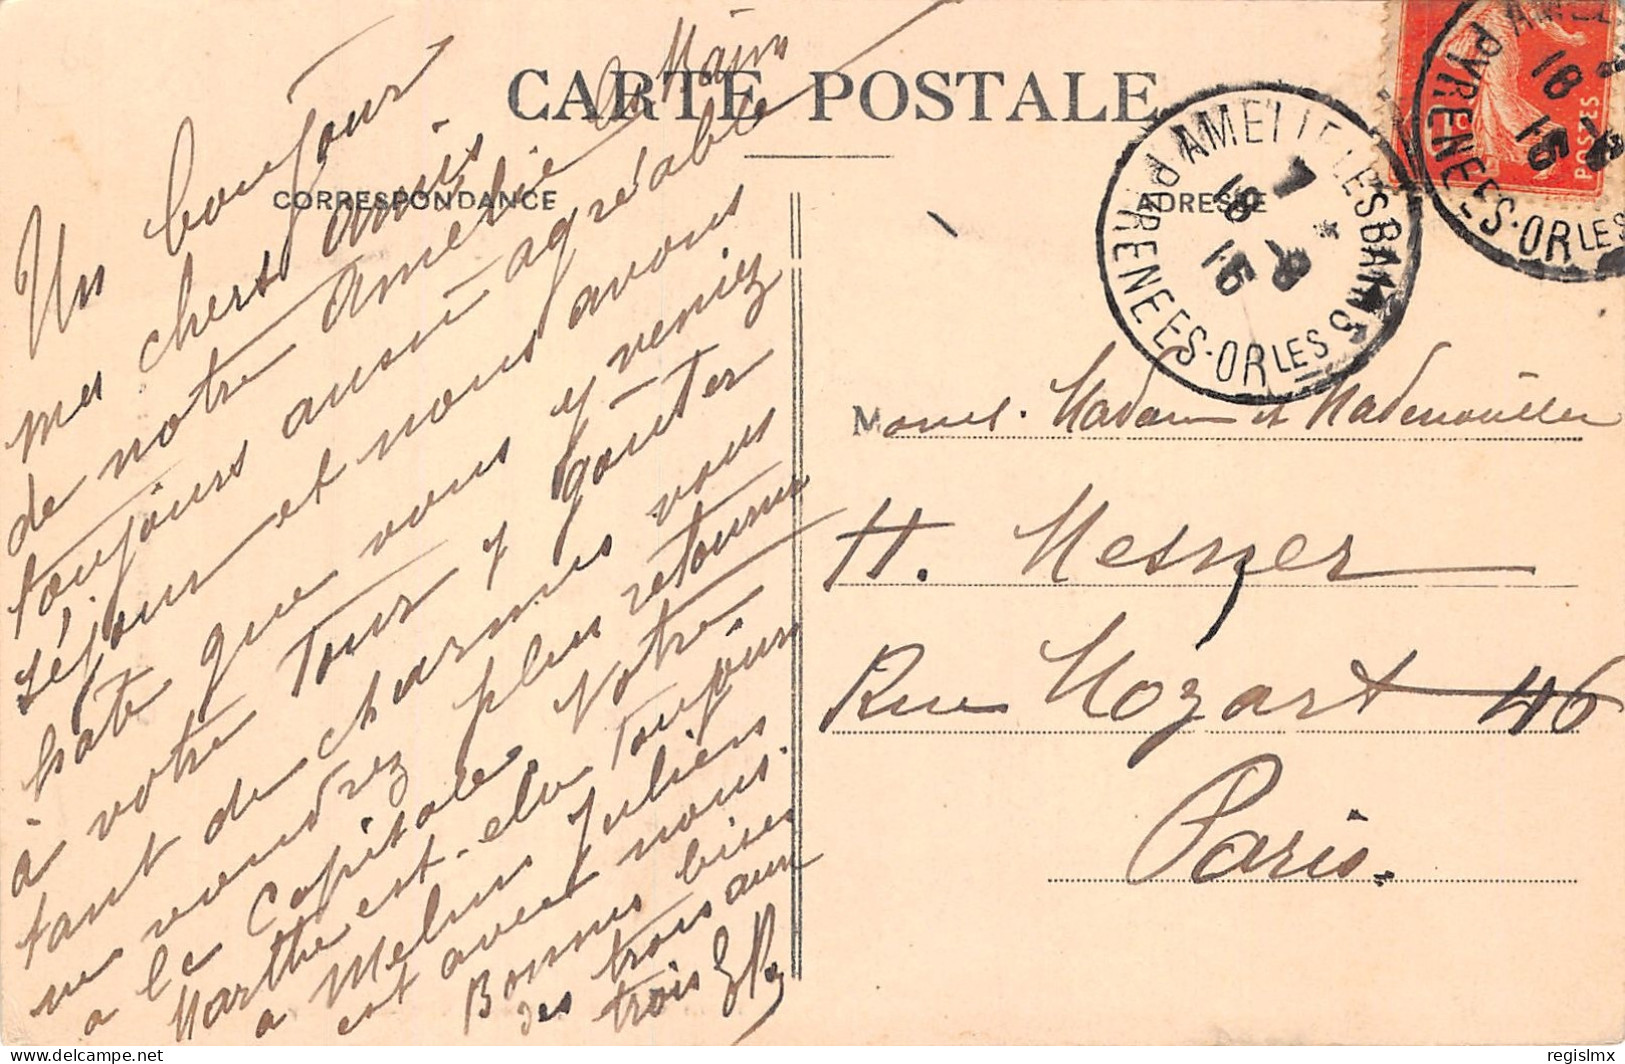 CARTE POSTALE
CORRESPONDANCE
ADRESSE
Un bonjour
mes chers amis
de notre Amélie
toujours aussi agréable
séjour et nous avons
hâte que vous y veniez
à votre Tour y gouter
tant de charmes vous
ne voudrez plus retourner
a la Capitale. Votre
Marthe est-elle Toujours
a Melun Juliens
est avec nous.
Bonnes bises
des trois aux
trois
AMELIE LES BAINS
PYRENEES-ORLES
7 *
18 -9
15
AMELIE
PYRENEES-ORLES
18 -9
15
POSTES
M Madame et Mademoiselle
H. Mesner
Rue Mozart 46
Paris.
delcampe.net
regislmx